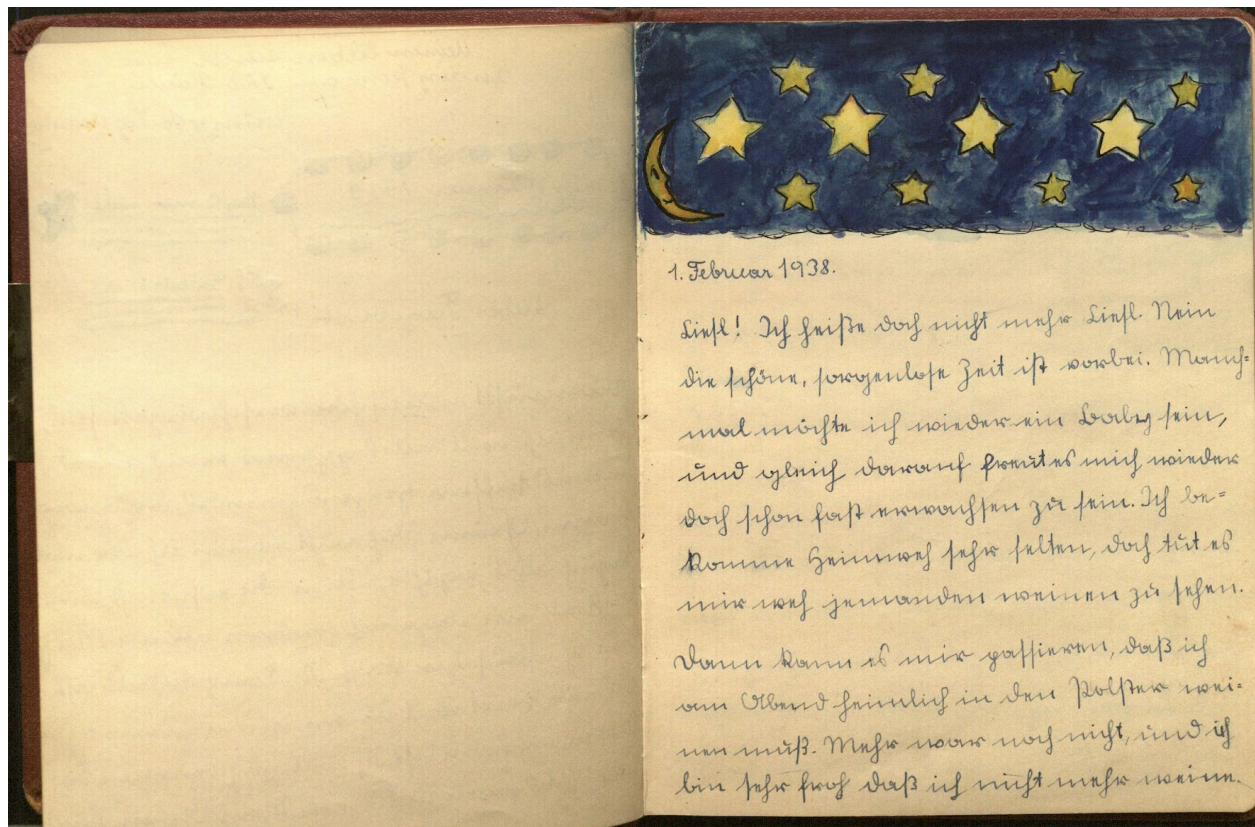 1. Februar 1938.
Liesl! Ich heiße doch nicht mehr Liesl. Nein
die schöne, sorgenlose Zeit ist vorbei. Manch=
mal möchte ich wieder ein Baby sein,
und gleich darauf freut es mich wieder
doch schon fast erwachsen zu sein. Ich be=
komme Heimweh sehr selten, doch tut es
mir weh jemanden weinen zu sehen.
Dann kann es mir passieren, daß ich
am Abend heimlich in den Polster wei=
nen muß. Mehr war noch nicht, und ich
bin sehr froh daß ich nicht mehr weine.